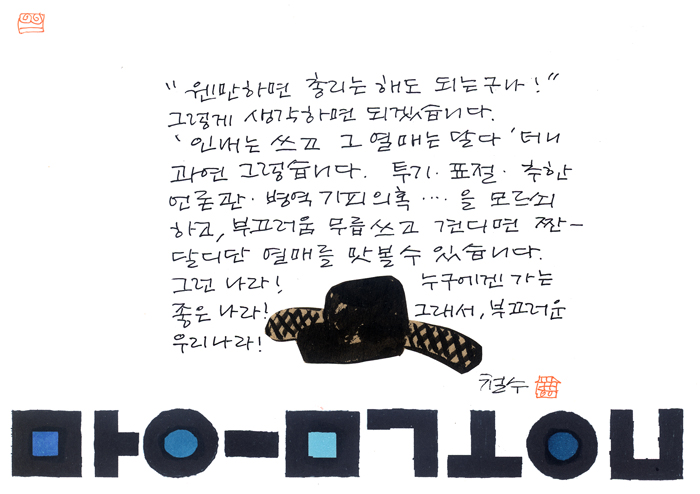 "웬만하면 총리는 해도 되는구나!"
그렇게 생각하면 되겠습니다.
'인내는 쓰고 그 열매는 달다'더니
과연 그렇습니다. 투기·표절·추한
언론관·병역기피의혹····을 모르쇠
하고, 부끄러움 무릅쓰고 견디면 짠-
달디단 열매를 맛볼 수 있습니다.
그런 나라! 누구에겐가는
좋은 나라! 그래서, 부끄러운
우리나라!
철수